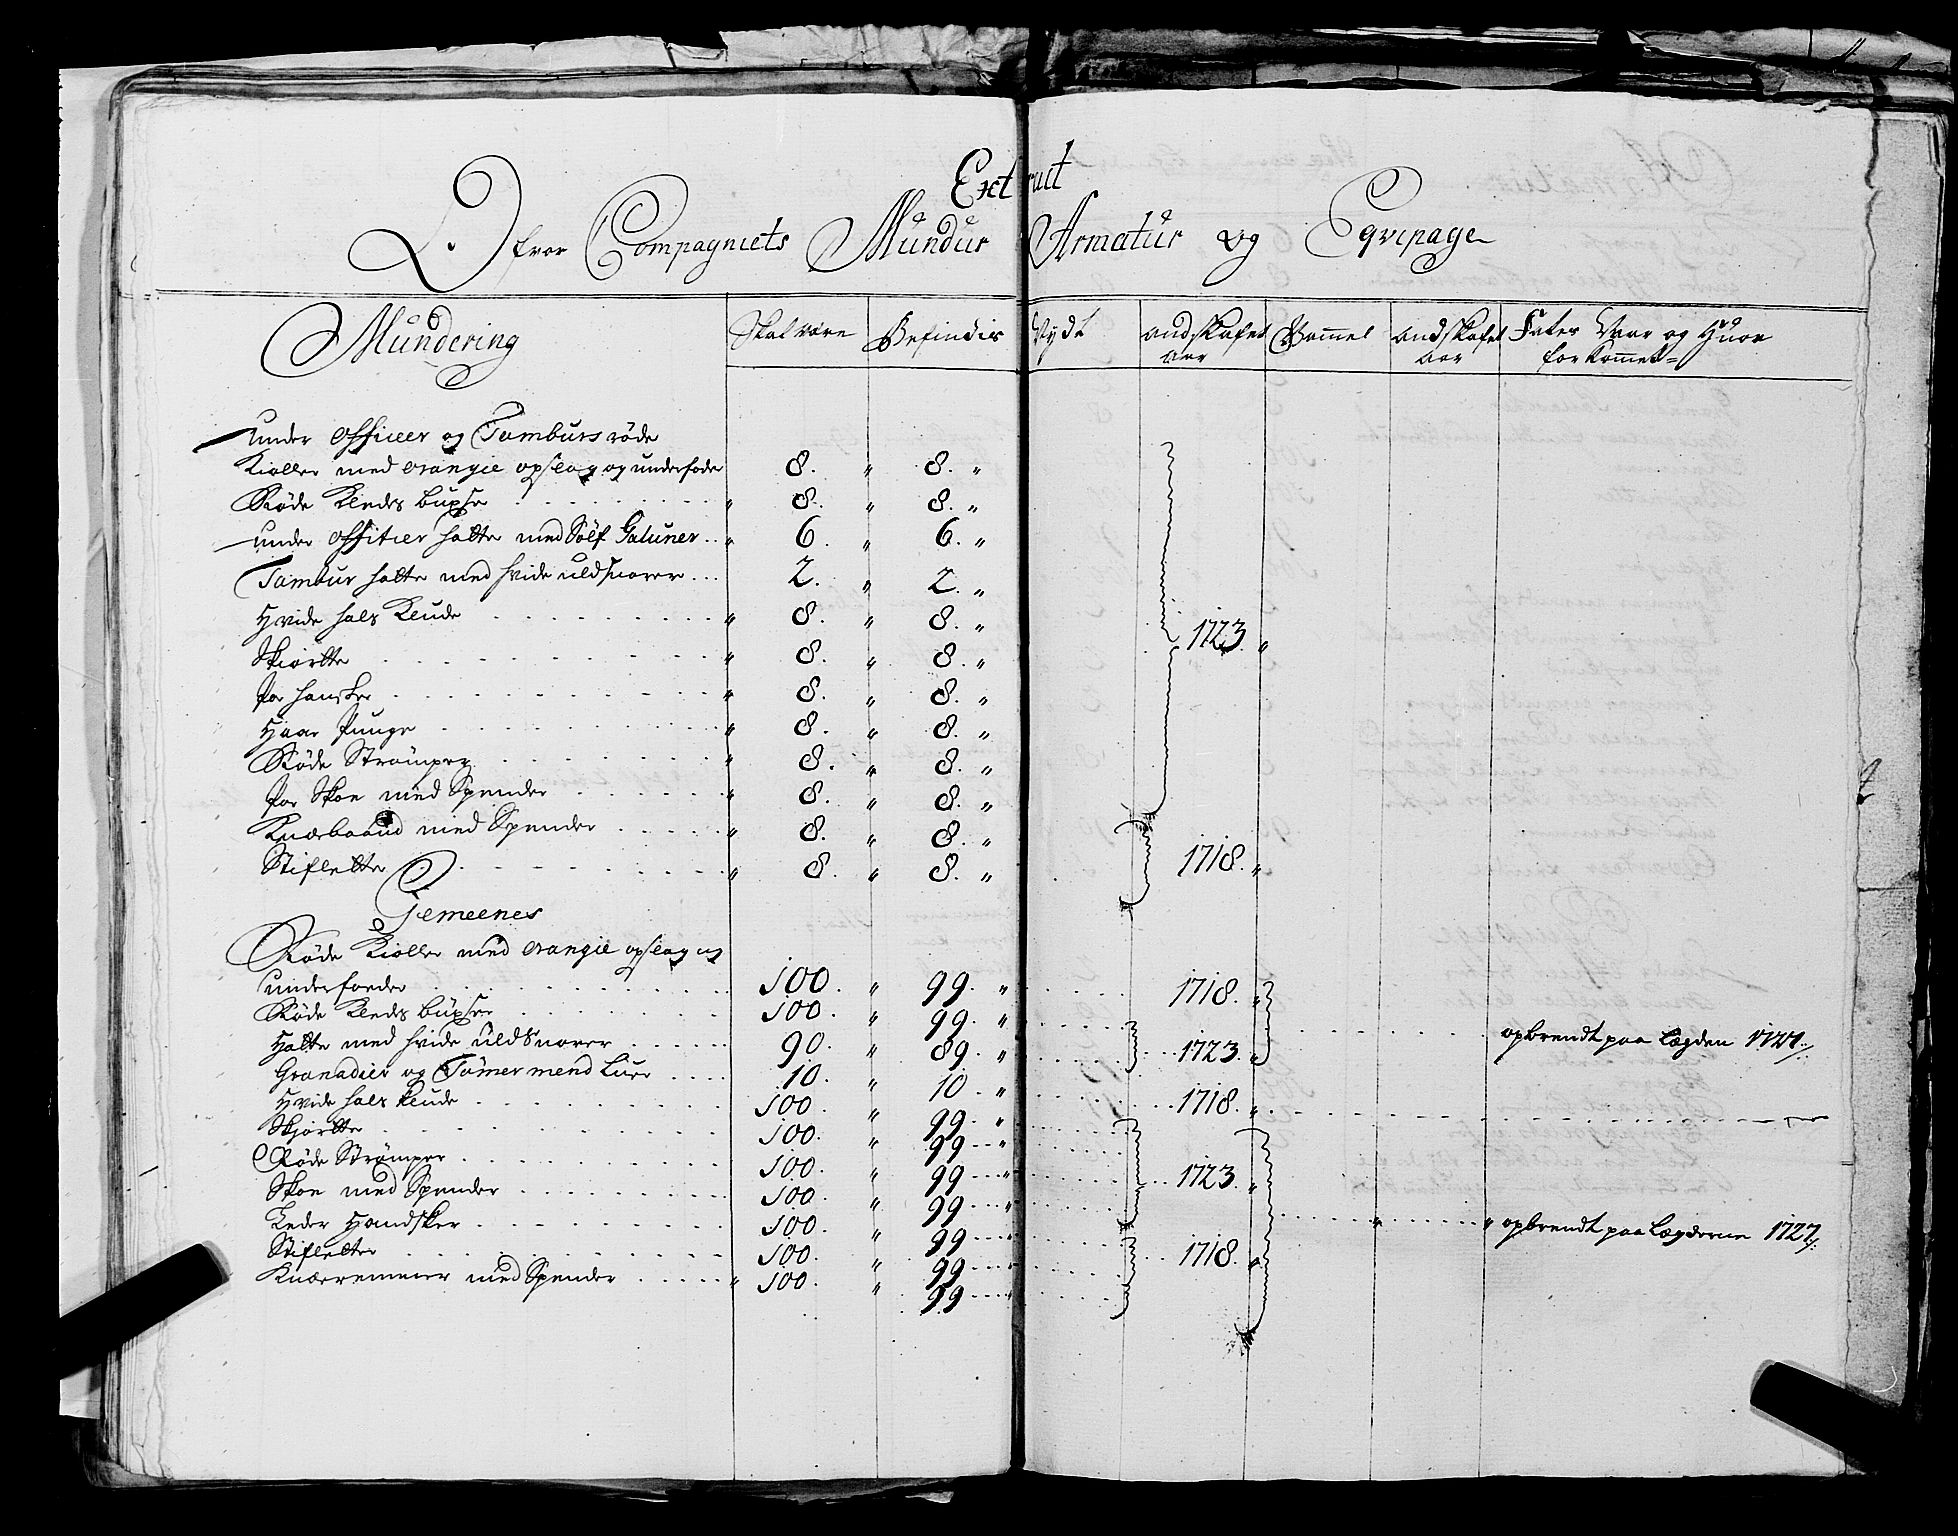 Extract
Ofver Compagniets Mundur Armatur og Eqvipage
Mundering
Skal være Befindis Nydt andskafet aar Gammel andskafet aar Fater Naar og Huor forkommet=
Under Officer og Tamburs röde
Kioller med orangie opslag og underfode 8. " 8. "
Röde Kleds buxser " 8. " 8. "
Under Officier hatte med Sölf Galuner " 6. " 6. "
Tambur hatte med hvide uldsnorer 2. " 2. "
Hvide hals Klude " 8. " 8. " 1723 "
Skiortte " 8. " 8. "
Par hansker " 8. " 8. "
Haar Punge " 8. " 8. "
Röde Strömper " 8. " 8. "
Par Skoe med Spender " 8. " 8. "
Knæbaand med Spender " 8. " 8. "
Stifletter " 8. " 8. " 1718. "
Gemeenes
Röde Kioller med orangie opslag og
underfoeder 100. " 99. " 1718. "
Röde Kleds buxser 100. " 99. "
Hatte med hvide uldsnorer 90. " 89. " 1723. " opbrendt paa Lægden 1727/:
Granadier og Tömermend Luer 10. " 10. "
Hvide hals klude 100. " 99. " 1718. "
Skjortte 100. " 99 "
Röde Strömper 100. " 99 " 1723. "
Skoe med Spender 100. " 99 "
Leder Handsker 100. " 99 " " " opbrendt paa Lægderne 1727/:
Stifletter 100. " 99 " 1718. "
Knæeremmer med Spender " 100. " 99 "